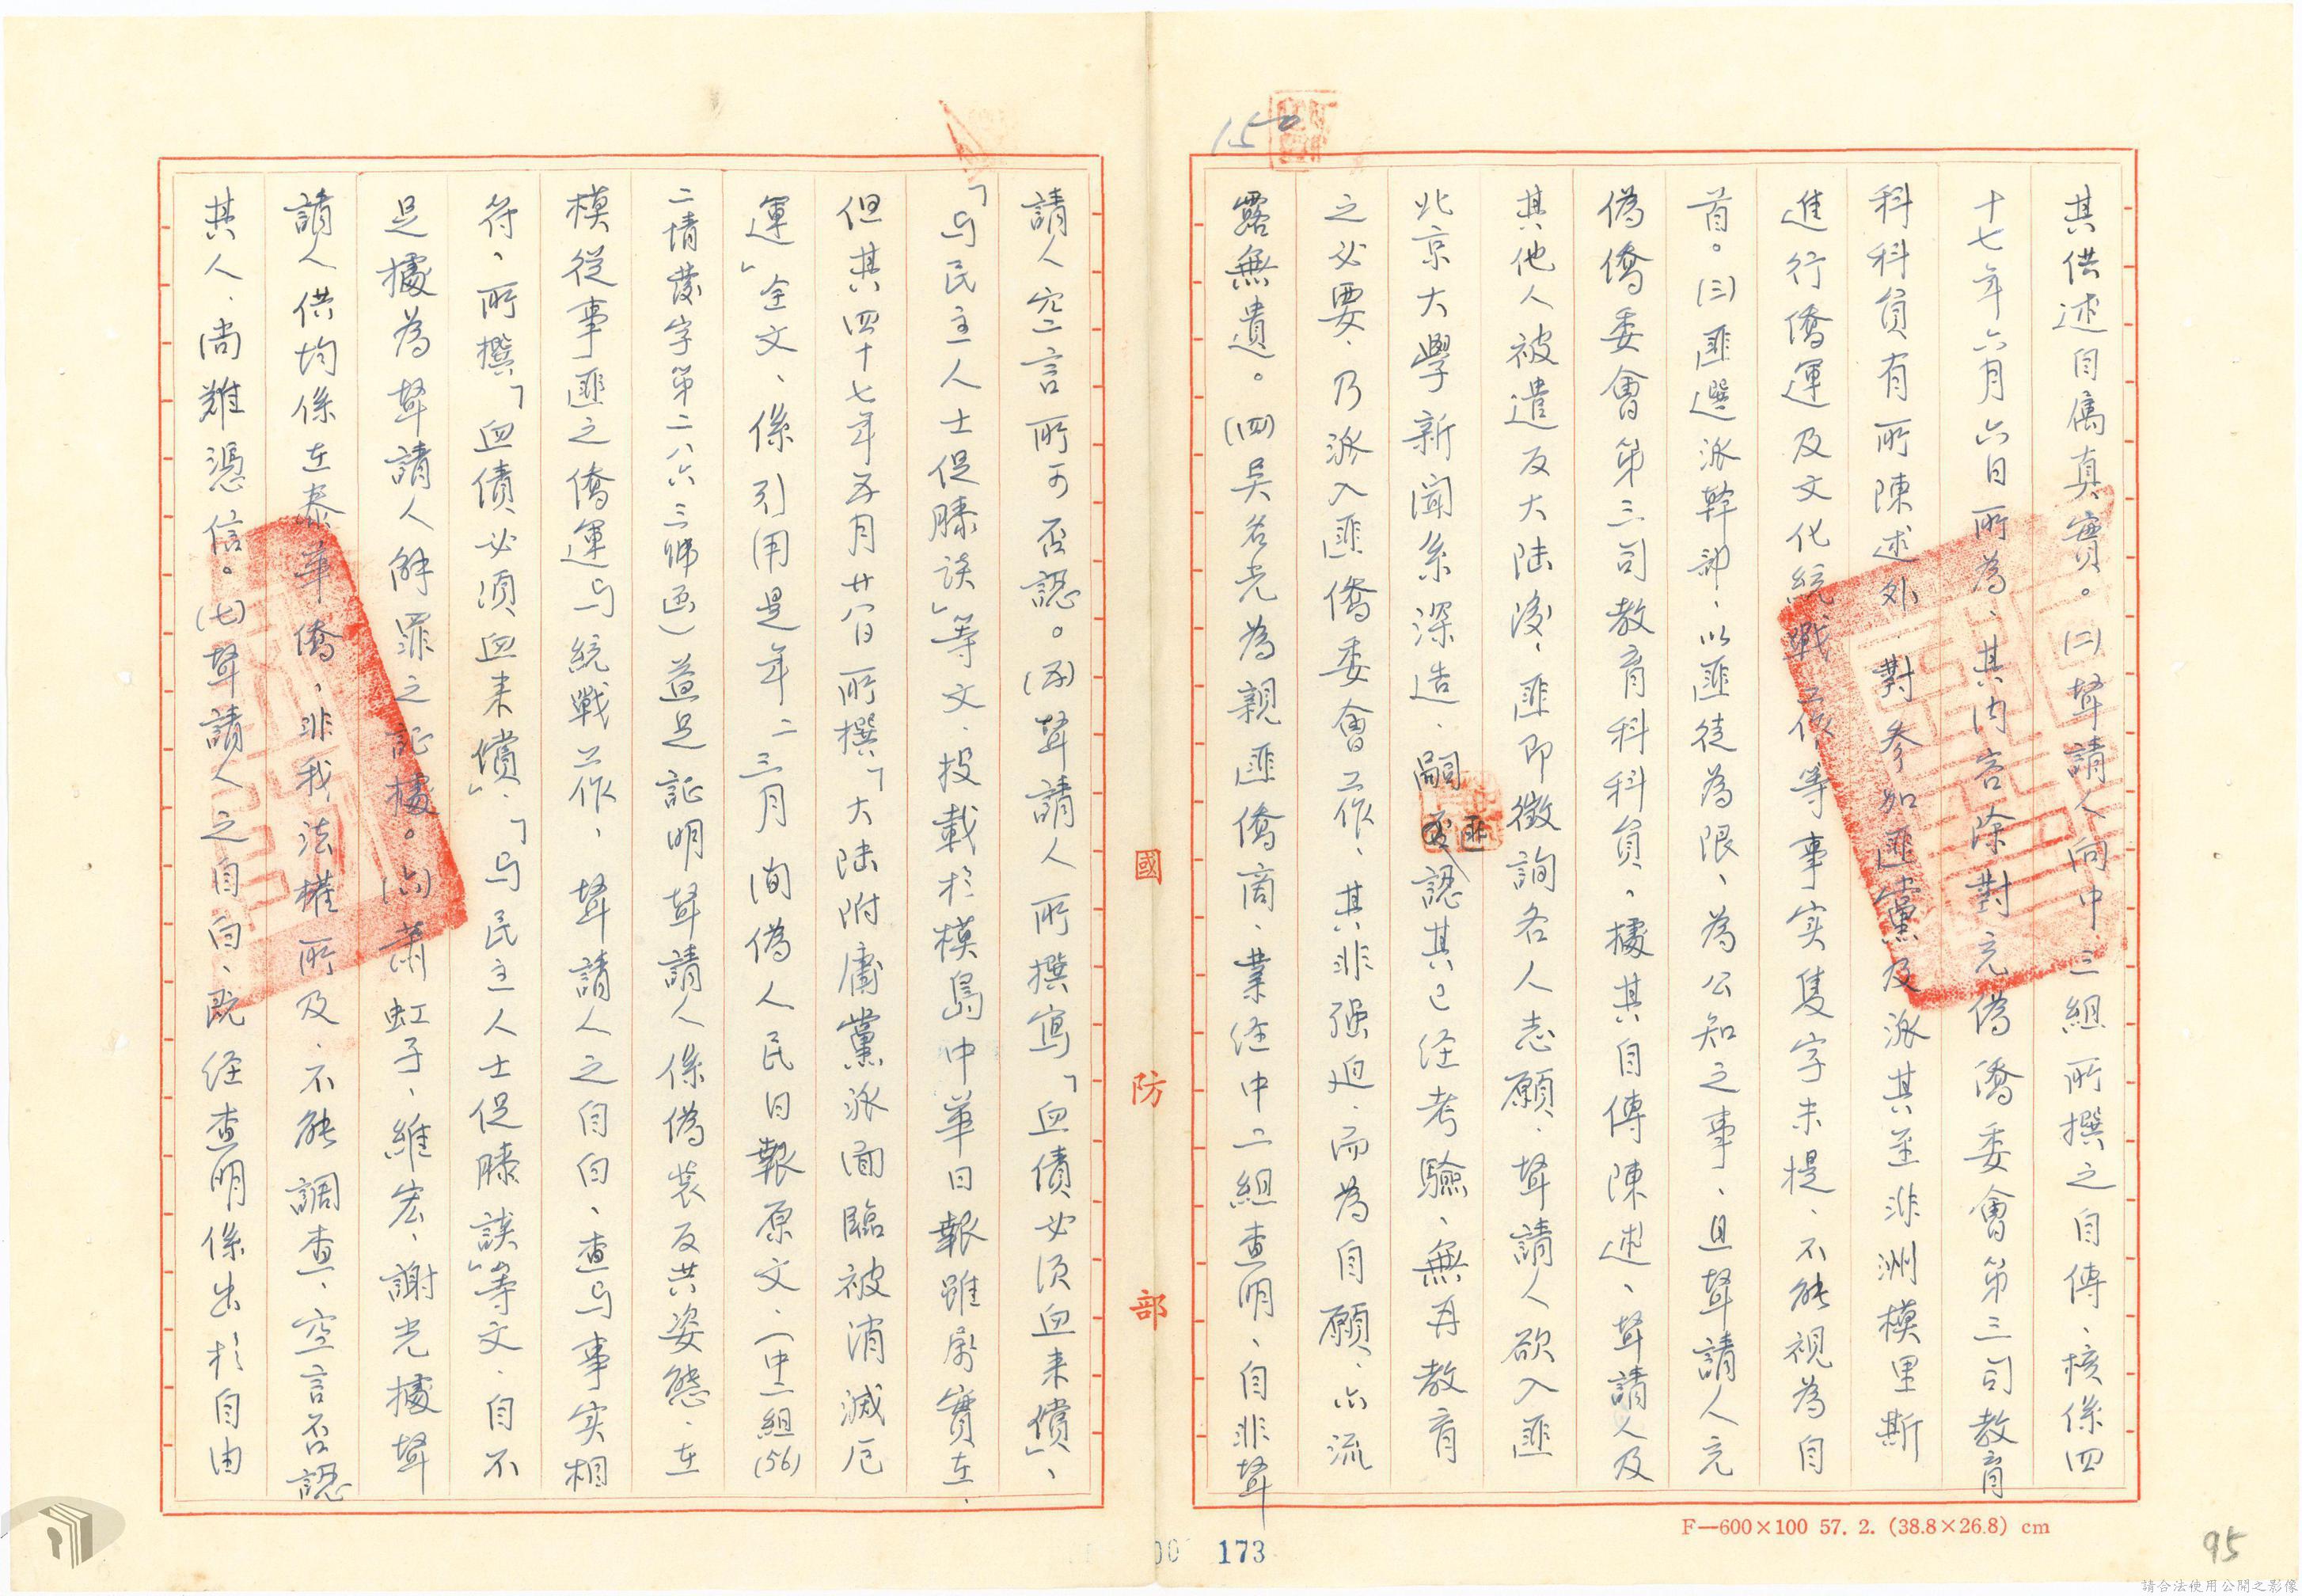 其供述自属真實。(二)聲請人向中三組所撰之自傳、核係四
十七年六月六日所為、其内容除對充偽僑委會第三司教育
科科員有所陳述外、對參加匪黨及派其至非洲模里斯
進行僑運及文化統戰工作等事实隻字未提、不能視為自
首。(三)匪選派幹部、以匪徒為限、為公知之事、且聲請人充
偽僑委會第三司教育科科員、據其自傳陳述、聲請人及
其他人被遣返大陆後、匪即徵詢各人志願、聲請人欲入匪
北京大學新聞系深造、嗣匪認其已经考驗、無再教育
之必要、乃派入匪僑委會工作、其非强迫、而為自願、亦流
露無遺。(四)吴名光為親匪僑商、業经中二組查明、自非聲
請人空言所可否認。(五)聲請人所撰寫「血債必須血來償」、
「与民主人士促膝談」等文、投載於模島中華日報雖屬實在、
但其四十七年五月廿八日所撰「大陆附庸黨派面臨被消滅厄
運」全文、係引用是年二三月間偽人民日報原文、(中二組(56)
二情發字第二八六三號函)益足証明聲請人係偽裝反共姿態、在
模從事匪之僑運与統戰工作、聲請人之自白、查与事实相
符、所撰「血債必須血来償」、「与民主人士促膝談」等文、自不
足據為聲請人解罪之証據。(六)蕭虹子、維宏、謝光據聲
請人供均係在泰華僑、非我法權所及、不能調查、空言否認
其人、尚難憑信。(七)聲請人之自白、既经查明係出於自由
國防部
150
F—600×100 57. 2. (38.8×26.8) cm
173
95
請合法使用公開之影像